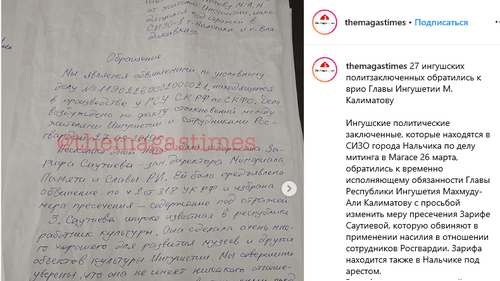 от жителей Ингушетии, нахо-
СИЗО-1 г. Нальчика и г. Вла-
дикавказа
Обращение
Мы являемся обвиняемыми по уголовному
в производстве у ГСУ СК РФ по СКФО. Дело
возбуждено по факту столкновений между
жителями Ингушетии и сотрудниками Рос-
@themagastimes
рифа Саутиева - зам. директора Мемориала
Памяти и Славы РИ. Ей было предъявлено
обвинение по ч.2 ст 318 УК РФ и избрана
мера пресечения - содержание под стражей
З. Саутиева широко известная в республике
работник культуры. Она сделала очень мно-
го хорошего для развития музеев и других
объектов культуры Ингушетии. Мы совершенно
уверены, что она не имеет никакого отноше-
themagastimes • Подписаться
themagastimes 27 ингушских
политзаключенных обратились к
врио Главы Ингушетии М.
Калиматову
Ингушские политические
заключенные, которые находятся в
СИЗО города Нальчика по делу
митинга в Магасе 26 марта,
обратились к временно
исполняющему обязанности Главы
Республики Ингушетия Махмуду-
Али Калиматову с просьбой
изменить меру пресечения Зарифе
Саутиевой, которую обвиняют в
применении насилия в отношении
сотрудников Росгвардии. Зарифа
находится также в Нальчике под
арестом.